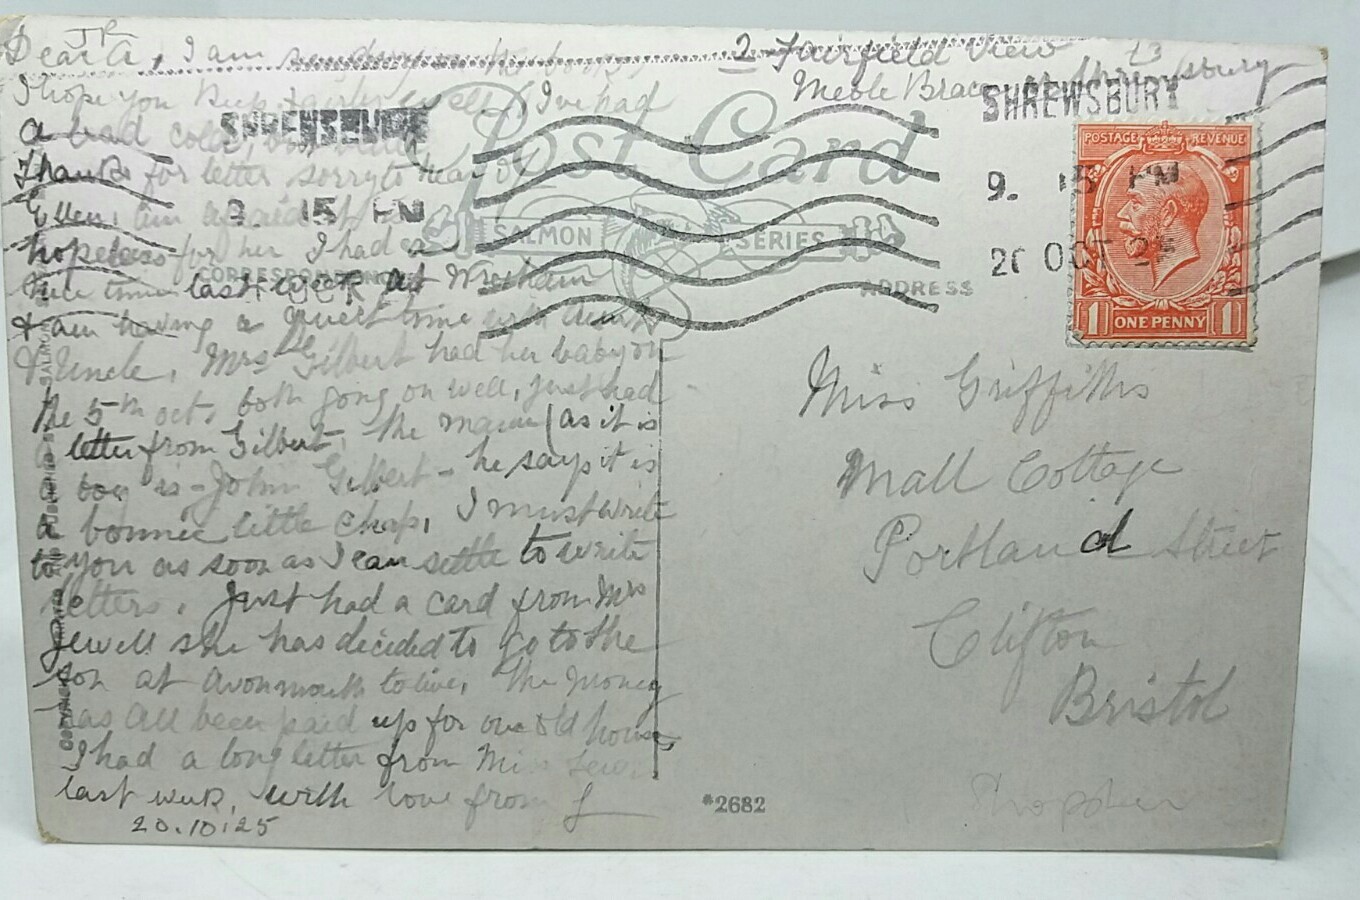 Dear A, I am sending the book
I hope you keep fairly well, I've had
a bad cold, but better
Thanks for letter sorry to hear of
Ellen, am afraid it
hopeless for her I had a
nice time last week at Wrexham
& am having a quiet time with Aunt
& Uncle, Mrs Gilbert had her baby on
the 5th oct, both going on well, just had
a letter from Gilbert, the name (as it is
a boy is - John Gilbert - he says it is
a bonnie little chap, I must write
to you as soon as I can settle to write
letters. Just had a card from Mrs
Jewell she has decided to go to the
son at Avonmouth to live, The money
has all been paid up for our old house,
I had a long letter from Miss
last week, with love from L
20.10.25
2 Fairfield View
Meole Brace Shrewsbury
Post Card
SALMON SERIES
CORRESPONDENCE
ADDRESS
SHREWSBURY
9. 15 PM
SHREWSBURY
9. 15 PM
20 OCT 25
POSTAGE REVENUE
1 ONE PENNY 1
Miss Griffiths
Mall Cottage
Portland Street
Clifton
Bristol
*2682